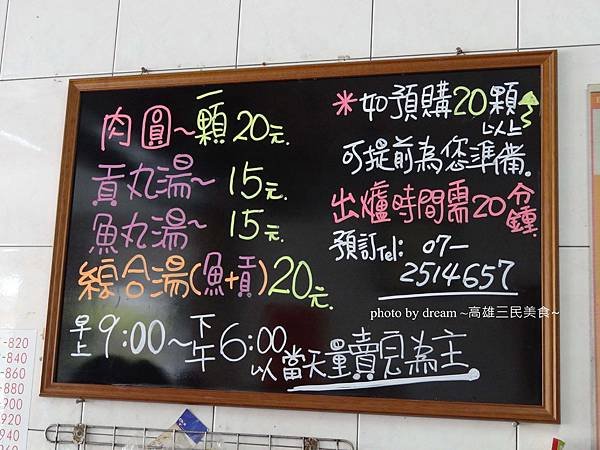 肉圓~一顆20元.
貢丸湯~ 15元.
魚丸湯~ 15元.
綜合湯(魚+貢)20元.
早上9:00~下午6:00
以當天量賣完為主
*如預購20顆以上
可提前為您準備。
出爐時間需20分鐘.
預訂Tel: 07-
2514657
photo by dream ~高雄三民美食~
-820
-840
-860
-880
-900
-920
-940
-960